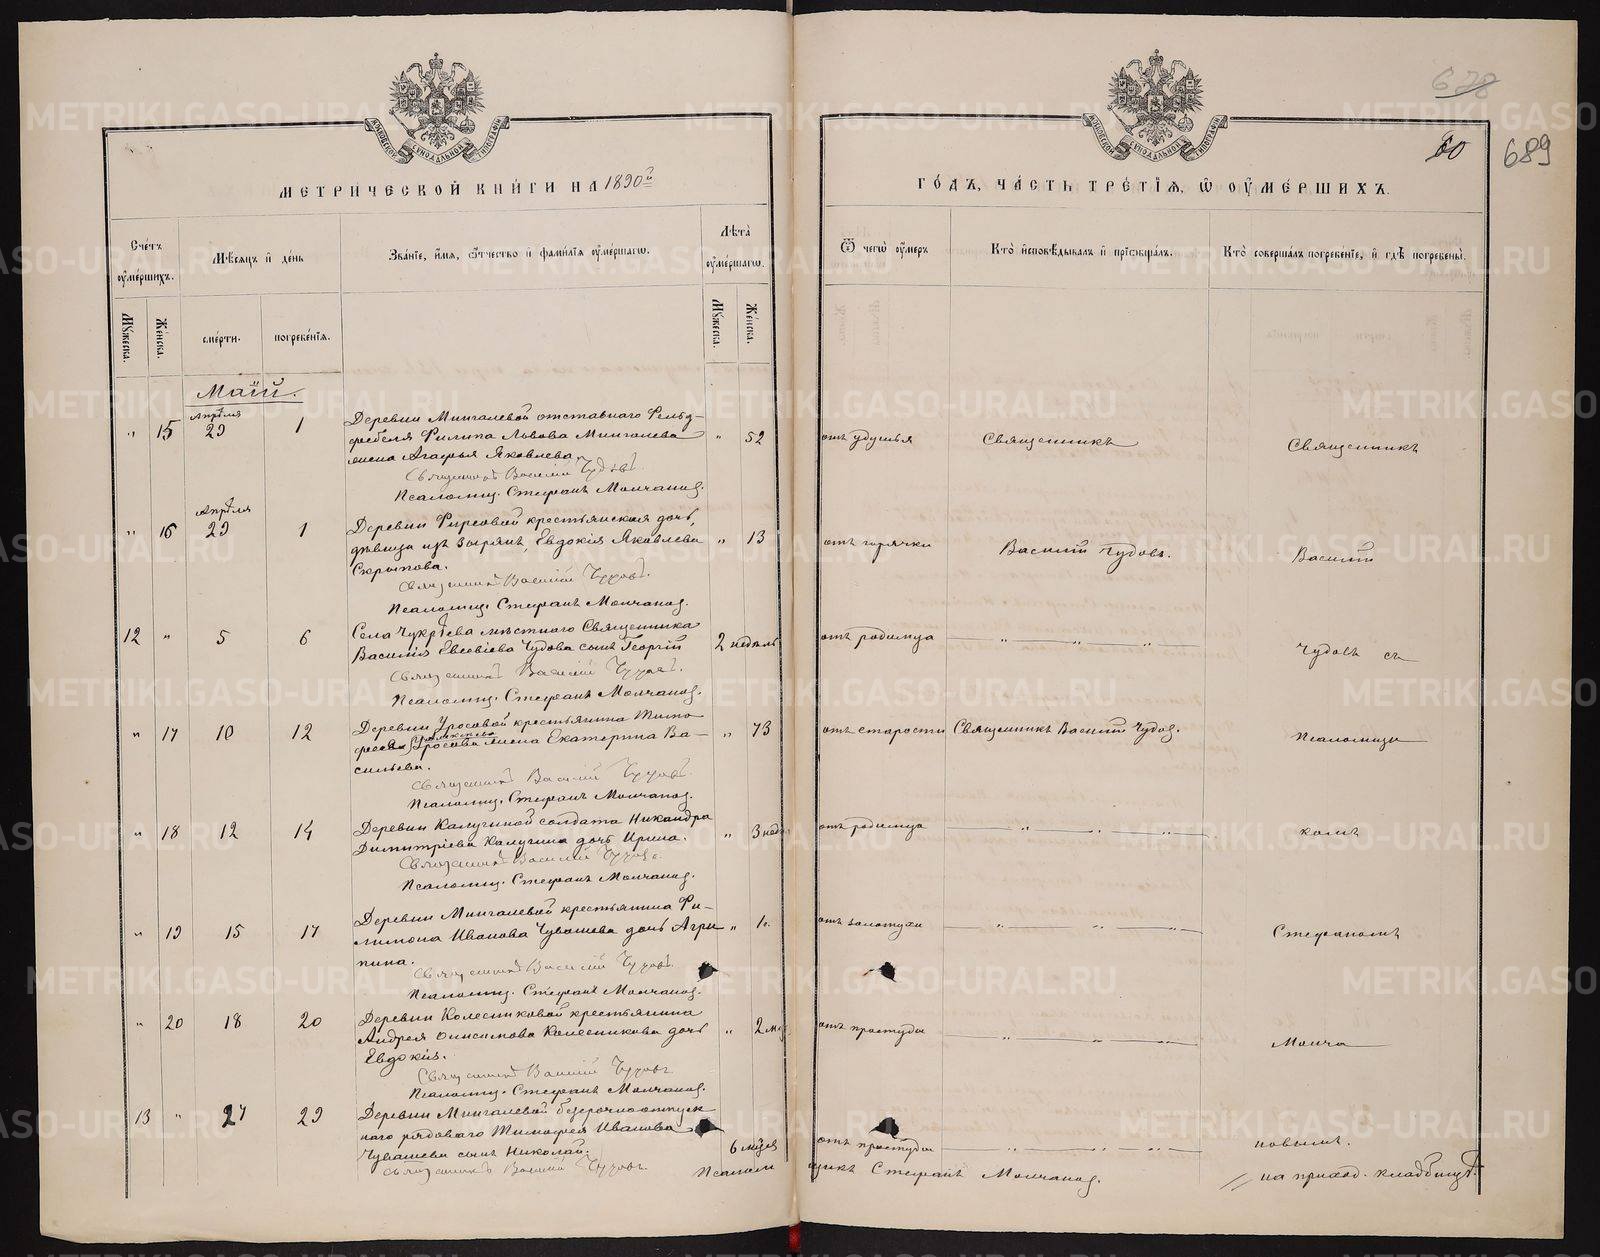 МЕТРИЧЕСКОЙ КНИГИ НА 1890й
Счетъ оумершихъ.
Мѣсяцъ и день
Званіе, имя, отчество и фамилія оумершагѡ.
Лѣта оумершагѡ.
Мужеска.
Женска.
смерти.
погребенія.
Мужеска.
Женска.
Маій.
Апрѣля
" 15 29 1 Деревни Мингалевой отставнаго Фельд-
фебеля Филипа Львова Мингалева " 52
жена Агафья Яковлева.
Священникъ Василій Чудовъ.
Псаломщ. Стефанъ Молчанов.
Апрѣля
" 16 29 1 Деревни Фирсовой крестьянская дочь,
дѣвица изъ зырянъ, Евдокія Яковлева " 13
Скрыпова.
Священникъ Василій Чудовъ.
Псаломщ. Стефанъ Молчанов.
12 " 5 6 Села Чукрѣева мѣстнаго Священника
Василія Евсевіева Чудова сынъ Георгій 2 недѣль
Священникъ Василій Чудовъ.
Псаломщ. Стефанъ Молчанов.
" 17 10 12 Деревни Уросовой крестьянина Тимо-
феева Уросова жена Екатерина Ва- " 73
сильева.
Священникъ Василій Чудовъ.
Псаломщ. Стефанъ Молчанов.
" 18 12 14 Деревни Калугиной солдата Никандра
Димитріева Калугина дочь Ирина. " 3 нед
Священникъ Василій Чудовъ.
Псаломщ. Стефанъ Молчанов.
" 19 15 17 Деревни Мингалевой крестьянина Фи-
лимона Иванова Чувашева дочь Агри- " 1г.
пина.
Священникъ Василій Чудовъ.
Псаломщ. Стефанъ Молчанов.
" 20 18 20 Деревни Колесниковой крестьянина
Андрея Онисимова Колесникова дочь " 2 м
Евдокія.
Священникъ Василій Чудовъ
Псаломщ. Стефанъ Молчанов.
13 " 27 29 Деревни Мингалевой безсрочноотпуск
наго рядоваго Тимофея Иванова
Чувашева сынъ Николай. 6 мѣсяц
Священникъ Василій Чудовъ
Псалом
678
60
689
ГОДЪ, ЧАСТЬ ТРЕТІЯ, Ѡ ОУМЕРШИХЪ.
Ѿ чегѡ оумеръ
Кто исповѣдывалъ и пріобщалъ.
Кто совершалъ погребеніе, и гдѣ погребены.
отъ удушья Священникъ Священникъ
отъ горячки Василій Чудовъ. Василій
отъ родимца " " " Чудовъ съ
отъ старости Священникъ Василій Чудов. Псаломщи
отъ родимца " " " комъ
отъ золотухи " " " Стефаномъ
отъ простуды " " " Молча
отъ простуды " " " новымъ.
щикъ Стефанъ Молчанов. на приход. кладбищѣ.
METRIKI.GASO-URAL.RU